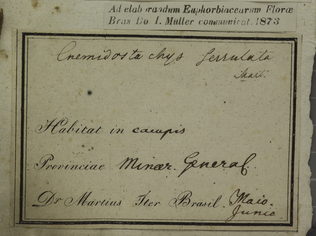 Ad elaborandum Euphorbiacearum Floræ
Bras Do. I. Müller communicat. 1873
Cnemidostachys serrulata
Mart.
Habitat in campis
Provinciae Minar. General.
Dr Martius Iter Brasil. Maio.
Junio